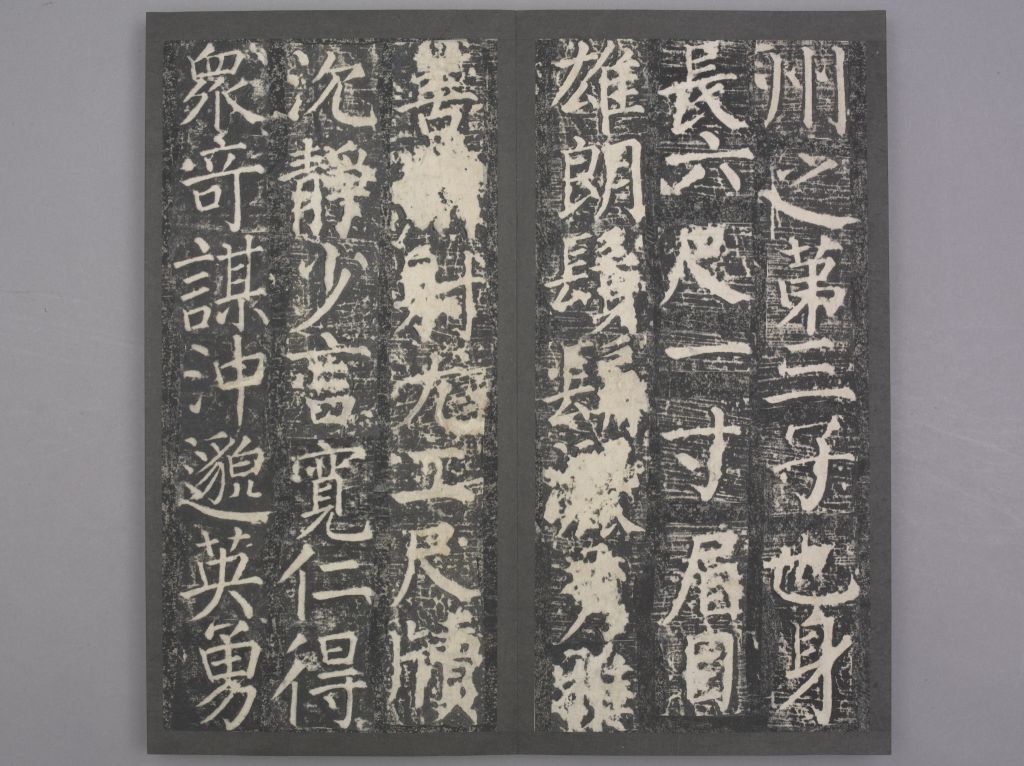 州之第三子也身
長六尺一寸眉目
雄朗鬚髯秀雅
善射尤工尺牘
沈靜少言寬仁得
眾竒謀沖邈英勇